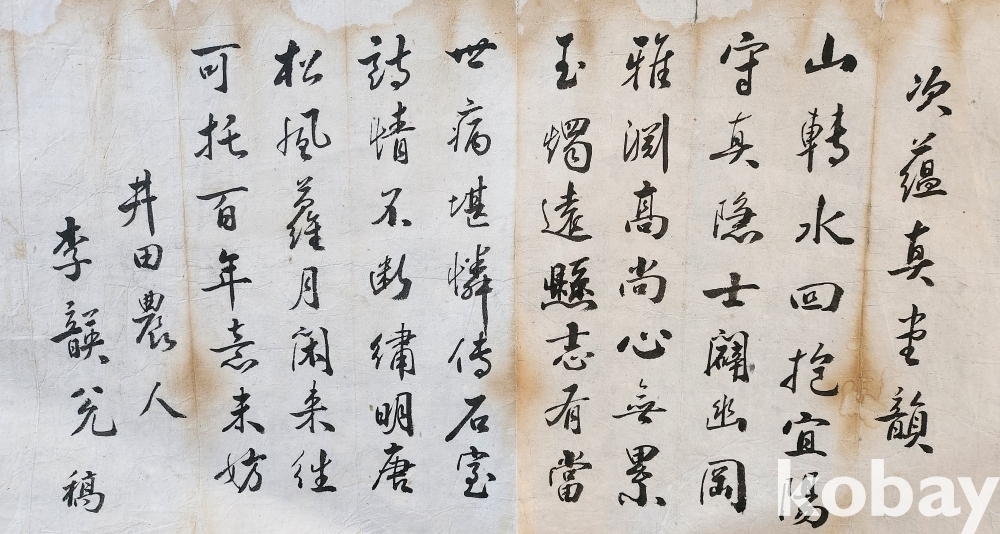 次蘊真堂韻
山轉水回抱宜陽
守真隱士闢幽岡
雅淵高尚心無累
玉燭遠懸志有當
世病堪憐傳石室
詩情不斷繡明唐
松風蘿月閑來往
可托百年意未妨
井田農人
李韺兌 稿
kobay